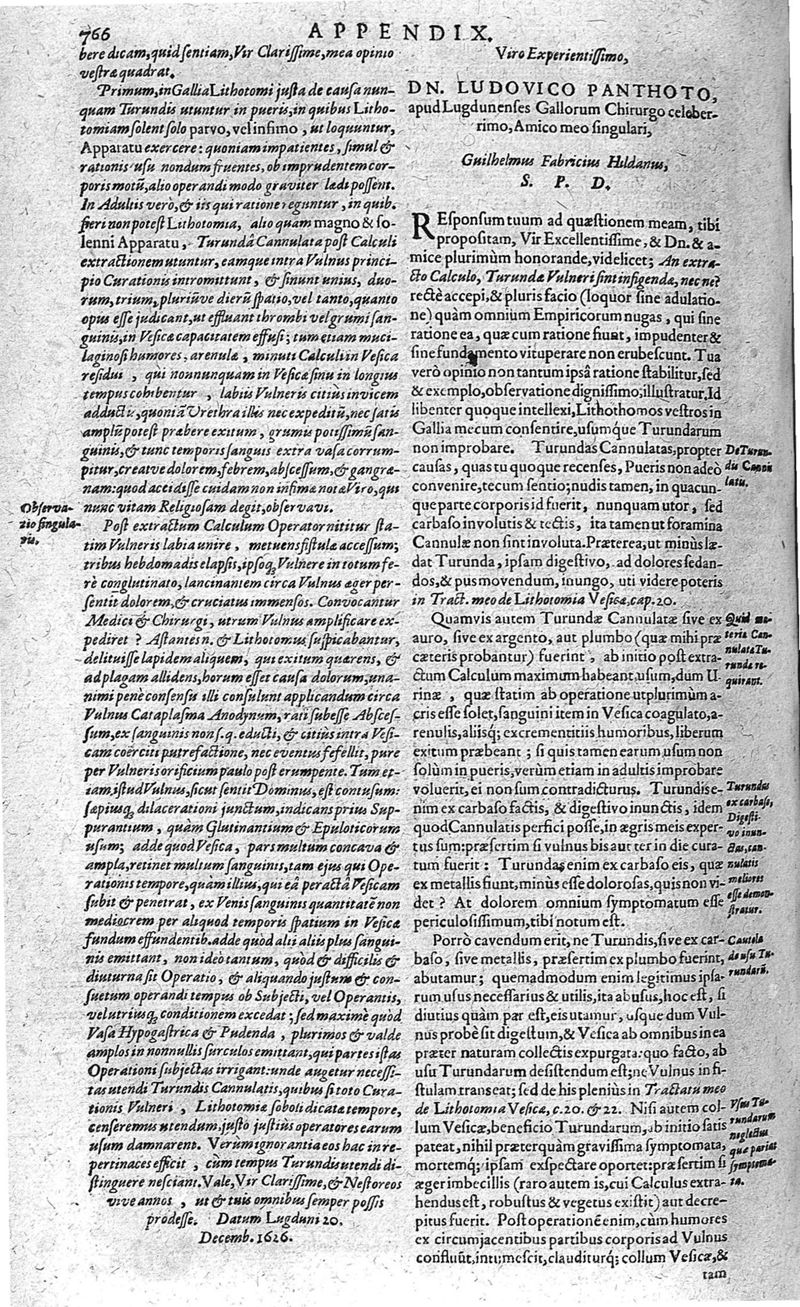 766
APPENDIX.
bere dicam, quid sentiam, Vir Clarissime, mea opinio
vestræ quadrat.
Primum, in Gallia Lithotomi justa de causa nun-
quam Turundis utuntur in pueris, in quibus Litho-
tomiam solent solo parvo, vel infimo, ut loquuntur,
Apparatu exercere: quoniam impatientes, simul &
rationis usu nondum fruentes, ob imprudentem cor-
poris motū, alio operandi modo graviter lædi possent.
In Adultis verò, & iis qui ratione reguntur, in quib.
fieri non potest Lithotomia, alio quam magno & so-
lenni Apparatu, Turundâ Cannulata post Calculi
extractionem utuntur, eamque intra Vulnus princi-
pio Curationis intromittunt, & sinunt unius, duo-
rum, trium, pluriũve dierũ spatio, vel tanto, quanto
opus esse judicant, ut effluant thrombi vel grumi san-
guinis, in Vesicæ capacitatem effusi; tum etiam muci-
laginosi humores, arenulæ, minuti Calculi in Vesica
residui, qui nonnunquam in Vesicæ sinu in longius
tempus cohibentur, labiis Vulneris citius invicem
adductis, quoniã Urethra illis nec expeditũ, nec satis
amplũ potest præbere exitum, grumis potissimũ san-
guinis, & tunc temporis sanguis extra vasa corrum-
pitur, creatve dolorem, febrem, abscessum, & gangræ-
nam: quod accidisse cuidam non infimæ notæ Viro, qui
nunc vitam Religiosam degit, observavi.
Observa-
tio singula-
ris.
Post extractum Calculum Operator nititur sta-
tim Vulneris labia unire, metuens fistulæ accessum;
tribus hebdomadis elapsis, ipsoq; Vulnere in totum fe-
rè conglutinato, lancinantem circa Vulnus æger per-
sentit dolorem, & cruciatus immensos. Convocantur
Medici & Chirurgi, utrum Vulnus amplificare ex-
pediret? Astantes n. & Lithotomus suspicabantur,
delituisse lapidem aliquem, qui exitum quærens, &
ad plagam allidens, horum esset causa dolorum, una-
nimi penè consensu illi consulunt applicandum circa
Vulnus Cataplasma Anodynum, rati subesse Absces-
sum, ex sanguinis non s.q. educti, & citius intra Vesi-
cam coërciti putrefactione, nec eventus fefellit, pure
per Vulneris orificium paulo post erumpente. Tum et-
iam, istud Vulnus, sicut sentit Dominus, est contusum:
sæpiusq; dilacerationi junctum, indicans prius Sup-
purantium, quàm Glutinantium & Epuloticorum
usum; adde quod Vesica, pars multum concava &
ampla, retinet multum sanguinis, tam ejus qui Ope-
rationis tempore, quàm illius, qui eâ peractâ Vesicam
subit & penetrat, ex Venis sanguinis quantitatē non
mediocrem per aliquod temporis spatium in Vesicæ
fundum effundentib. adde quòd alii aliis plus sangui-
nis emittant, non ideo tantum, quòd & difficilis &
diuturna sit Operatio, & aliquando justum & con-
suetum operandi tempus ob Subjecti, vel Operantis,
vel utriusq; conditionem excedat; sed maximè quòd
Vasa Hypogastrica & Pudenda, plurimos & valde
amplos in nonnullis surculos emittant, qui partes istas
Operationi subjectas irrigant: unde augetur necessi-
tas utendi Turundis Cannulatis, quibus si toto Cura-
tionis Vulneri, Lithotomiæ soboli dicatæ tempore,
censeremus utendum, justo justius operatores earum
usum damnarent. Verùm ignorantia eos hac in re per-
tinaces efficit, cùm tempus Turundis utendi di-
stinguere nesciant. Vale, Vir Clarissime, & Nestoreos
vive annos, ut & tuis omnibus semper possis
prodesse. Datum Lugduni 20.
Decemb. 1626.
Viro Experientissimo,
DN. LUDOVICO PANTHOTO,
apud Lugdunenses Gallorum Chirurgo celeber-
rimo, Amico meo singulari,
Guilhelmus Fabricius Hildanus,
S. P. D.
REsponsum tuum ad quæstionem meam, tibi
propositam, Vir Excellentissime, & Dn. & a-
mice plurimùm honorande, videlicet; An extra-
cto Calculo, Turundæ Vulneri sint infigendæ, nec ne?
rectè accepi, & pluris facio (loquor sine adulatio-
ne) quàm omnium Empiricorum nugas, qui sine
ratione ea, quæ cum ratione fiunt, impudenter &
sine fundamento vituperare non erubescunt. Tua
verò opinio non tantum ipsâ ratione stabilitur, sed
& exemplo, observatione dignissimo, illustratur. Id
libenter quoque intellexi, Lithothomos vestros in
Gallia mecum consentire, usumque Turundarum
non improbare. Turundas Cannulatas, propter
causas, quas tu quoque recenses, Pueris non adeò
convenire, tecum sentio; nudis tamen, in quacun-
que parte corporis id fuerit, nunquam utor, sed
carbaso involutis & tectis, ita tamen ut foramina
Cannulæ non sint involuta. Præterea, ut minùs læ-
dat Turunda, ipsam digestivo, ad dolores sedan-
dos, & pus movendum, inungo, uti videre poteris
in Tract. meo de Lithotomia Vesicæ, cap. 20.
De Turun-
dis Cannu-
latis.
Quamvis autem Turundæ Cannulatæ sive ex
auro, sive ex argento, aut plumbo (quæ mihi præ
cæteris probantur) fuerint, ab initio post extra-
ctum Calculum maximum habeant usum, dum U-
rinæ, quæ statim ab operatione utplurimùm a-
cris esse solet, sanguini item in Vesica coagulato, a-
renulis, aliisq; excrementitiis humoribus, liberum
exitum præbeant; si quis tamen earum usum non
solùm in pueris, verùm etiam in adultis improbare
voluerit, ei non sum contradicturus. Turundis e-
nim ex carbaso factis, & digestivo inunctis, idem
quod Cannulatis perfici posse, in ægris meis exper-
tus sum: præsertim si vulnus bis aut ter in die cura-
tum fuerit: Turundas enim ex carbaso eis, quæ
ex metallis fiunt, minùs esse dolorosas, quis non vi-
det? At dolorem omnium symptomatum esse
periculosissimum, tibi notum est.
Quid ma-
teriæ Can-
nulatæ Tu-
rundæ re-
quirant.
Turundas
ex carbaso,
Digesti-
vo inun-
ctas, can-
nulatis
meliores
esse demon-
stratur.
Porrò cavendum erit, ne Turundis, sive ex car-
baso, sive metallis, præsertim ex plumbo fuerint,
abutamur; quemadmodum enim legitimus ipsa-
rum usus necessarius & utilis, ita abusus, hoc est, si
diutius quàm par est, eis utamur, usque dum Vul-
nus probè sit digestum, & Vesica ab omnibus in ea
præter naturam collectis expurgata: quo facto, ab
usu Turundarum desistendum est; ne Vulnus in fi-
stulam transeat; sed de his pleniùs in Tractatu meo
de Lithotomia Vesicæ, c. 20. & 22. Nisi autem col-
lum Vesicæ, beneficio Turundarum, ab initio satis
pateat, nihil præterquàm gravissima symptomata,
mortemq; ipsam exspectare oportet: præsertim si
æger imbecillis (raro autem is, cui Calculus extra-
hendus est, robustus & vegetus existit) aut decre-
pitus fuerit. Post operationē enim, cùm humores
ex circumjacentibus partibus corporis ad Vulnus
confluūt, intumescit, clauditurq; collum Vesicæ, &
tam
Cautela
de usu Tu-
rundarū.
Usus Tu-
rundarum
neglectus
quæ pariat
symptoma-
ta.